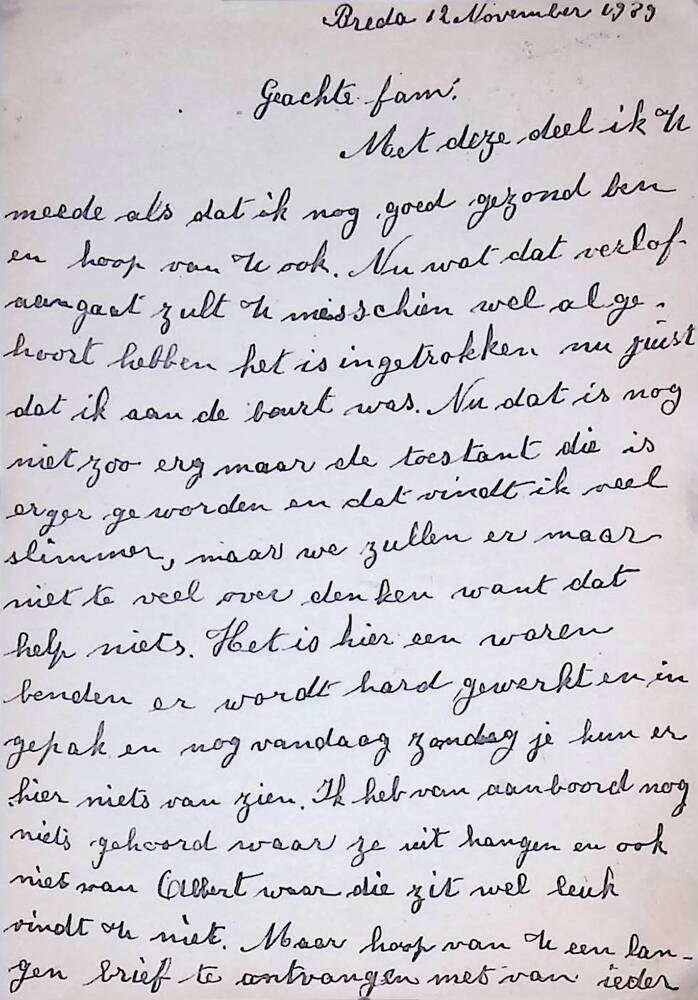 Breda 12 November 1939
Geachte fam:
Met deze deel ik U
meede als dat ik nog goed gezond ben
en hoop van U ook. Nu wat dat verlof-
aangaat zult U misschien wel al ge-
hoort hebben het is ingetrokken nu juist
dat ik aan de beurt was. Nu dat is nog
niet zoo erg maar de toestant die is
erger geworden en dat vindt ik veel
slimmer, maar we zullen er maar
niet te veel over denken want dat
help niets. Het is hier een waren
benden er wordt hard gewerkt en in
gepak en nog vandaag zondag je kun er
hier niets van zien. Ik heb van aanboord nog
niets gehoord waar ze uit hangen en ook
niet van Albert waar die zit wel leuk
vindt U niet. Maar hoop van U een lan-
gen brief te ontvangen met van ieder